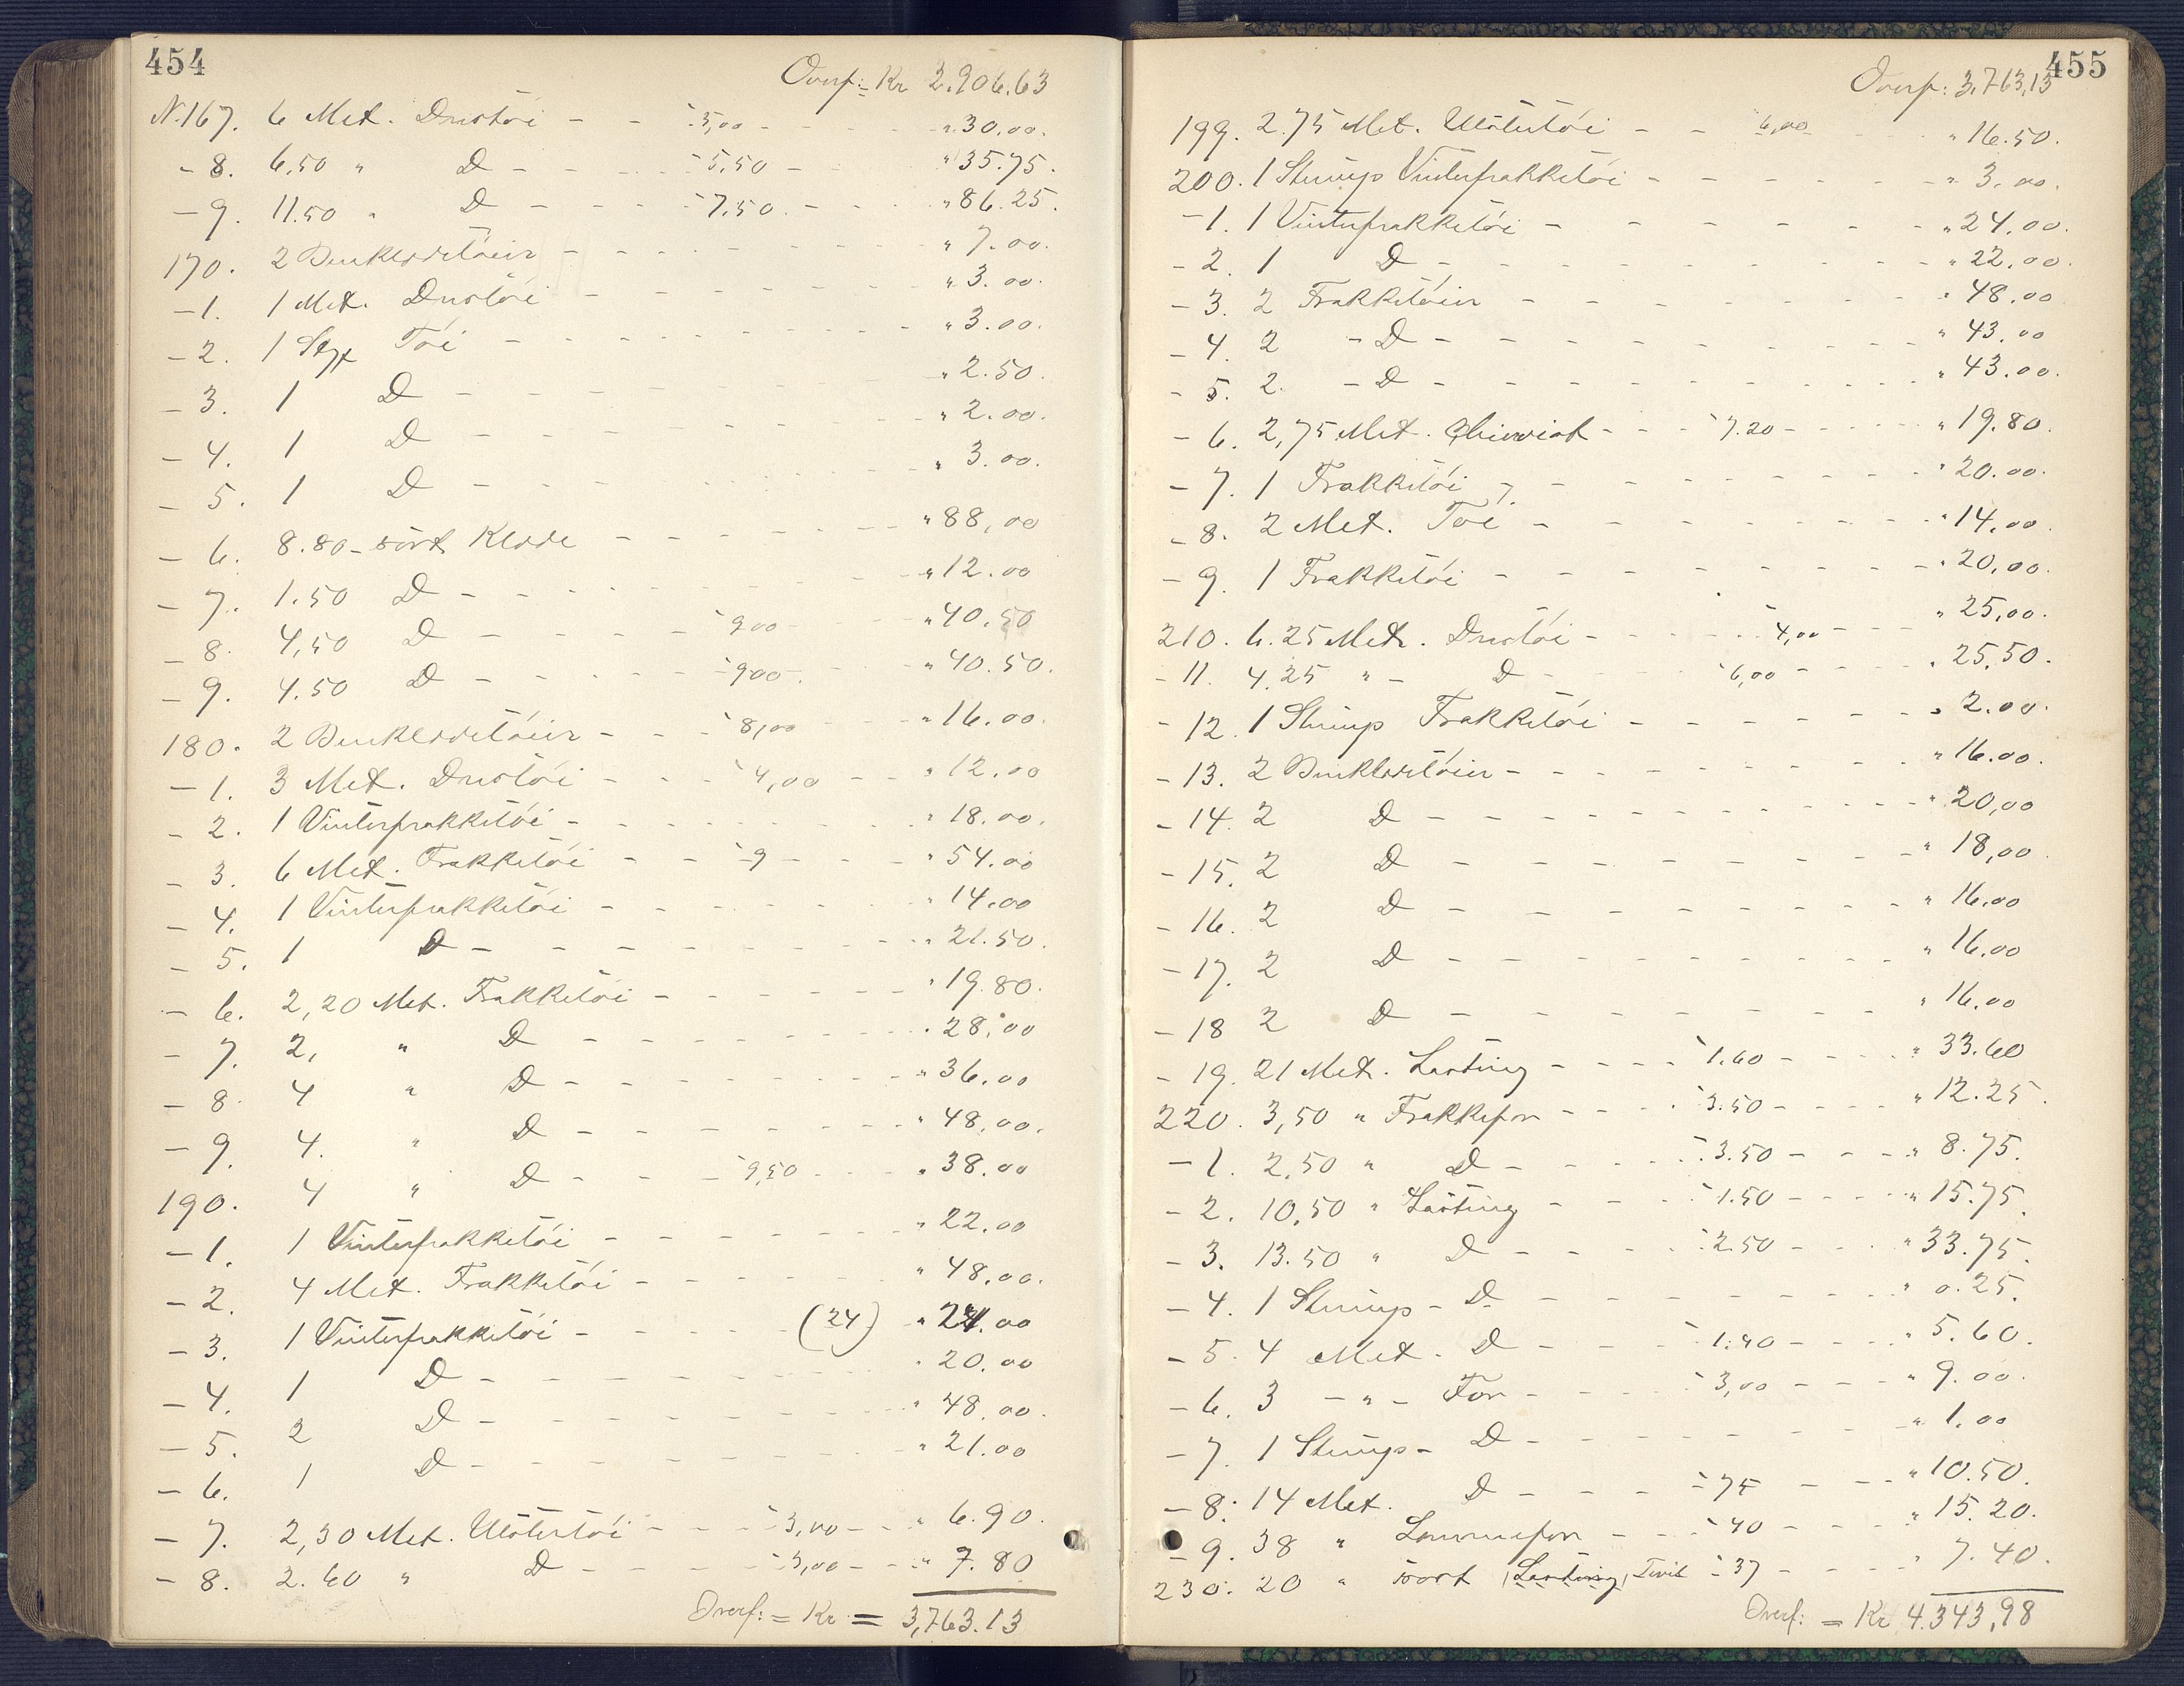 454
Overf: Kr 2.906.63
N. 167. 6 Met. Drestöi - - 5,00 - - - " 30,00.
- 8. 6,50 " D - - - 5,50 - " 35.75.
- 9. 11.50 " D - - - 7,50. - - - " 86.25.
170. 2 Benklædetöier - - - - - " 7.00.
- 1. 1 Met. Drestöi - - - - - " 3.00.
- 2. 1 Styk Töi - - - - - - " 3.00.
- 3. 1 D - - - - " 2.50.
- 4. 1 D - - - - " 2.00.
- 5. 1 D - - - - " 3.00.
- 6. 8.80 - sort Klæde - - - - - " 88,00
- 7. 1.50 D - - - - - " 12.00
- 8. 4,50 D - - - - 9 00 - - " 40.50
- 9. 4.50 D - - - - 9 00 - - " 40.50.
180. 2 Benklædetöier - - - 8,00 - - " 16.00.
- 1. 3 Met. Drestöi - - - 4,00 - - " 12.00
- 2. 1 Vinterfrakketöi - - - - - - " 18.00.
- 3. 6 Met. Frakketöi - - - 9 - - - " 54.00
- 4. 1 Vinterfrakketöi - - - - - " 14.00
- 5. 1 D - - - - - - " 21.50.
- 6. 2,20 Met. Frakketöi - - - - - " 19.80.
- 7. 2, " D - - - - - " 28.00
- 8. 4 " D - - - - - " 36.00
- 9. 4. " D - - - - - " 48,00.
190. 4 " D - - - 9,50 - - " 38.00
- 1. 1 Vinterfrakketöi - - - - - " 22.00
- 2. 4 Met. Frakketöi - - - - - " 48,00.
- 3. 1 Vinterfrakketöi - - - - (24) " 24.00
- 4. 1 D - - - - - " 20.00
- 5. 2 D - - - - - " 48.00.
- 6. 1 D - - - - - " 21.00
- 7. 2,30 Met. Ulstertöi - - - 3,00 - - " 6.90.
- 8. 2.60 " D - - - - 3,00 - - " 7.80
Overf: = Kr = 3,763.13
455
Overf: 3.763,13
199. 2.75 Met. Ulstertöi - - 6,00 - - " 16.50.
200. 1 Stump Vinterfrakketöi - - - - - " 3.00.
- 1. 1 Vinterfrakketöi - - - - - - " 24,00.
- 2. 1 D - - - - - - - " 22,00.
- 3. 2 Frakketöier - - - - - - " 48.00
- 4. 2 - D - - - - - - " 43.00
- 5. 2. - D - - - - - - " 43.00.
- 6. 2,75 Met. Cheviot - - - 7.20 - - - " 19.80.
- 7. 1 Frakketöi - - - - - - " 20.00.
- 8. 2 Met. Töi - - - - - - " 14.00.
- 9. 1 Frakketöi - - - - - - " 20,00.
210. 6.25 Met. Drestöi - - - - 4,00 - - " 25,00.
- 11. 4.25 " - D - - - 6,00 - - - " 25,50.
- 12. 1 Stump Frakketöi - - - - - - " 2.00.
- 13. 2 Benklædetöier - - - - - - " 16.00.
- 14. 2 D - - - - - - - " 20,00
- 15. 2 D - - - - - - - " 18,00
- 16. 2 D - - - - - - - " 16.00
- 17. 2 D - - - - - - - " 16.00
- 18 2 D - - - - - - - " 16.00
- 19. 21 Met. Lasting - - - - 1.60 - - - - " 33.60
220. 3,50 " Frakkefor - - - - 3.50 - - - - " 12.25.
- 1. 2,50 " D - - - - 3.50 - - - " 8.75.
- 2. 10,50 " Lasting - - - 1.50 - - - - " 15.75.
- 3. 13.50 " D - - - - 2.50 - - - " 33.75.
- 4. 1 Stump - D - - - - - - - " 0.25.
- 5. 4 Met. D - - - - 1.40 - - - " 5.60.
- 6. 3 - " - For - - - - 3,00 - - - " 9.00.
- 7. 1 Stump - D - - - - - - " 1.00
- 8. 14 Met. D - - - - 75 - - - " 10.50.
- 9. 38 " Lommefor - - - 40 - - - " 15.20.
230. 20 " sort (Lasting) Tvist - 37 - - - " 7.40.
Overf: = Kr 4.343,98